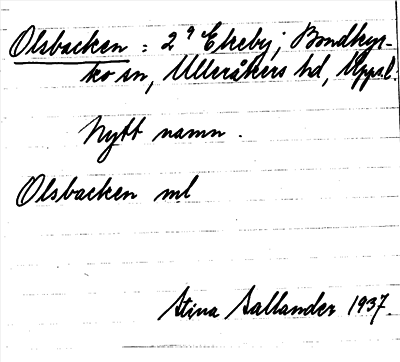 Olsbacken : 2⁹ Ekeby, Bondkyr-
ko sn, Ulleråkers hd, Uppsl.
Nytt namn.
Olsbacken ml
Stina Sallander 1937.